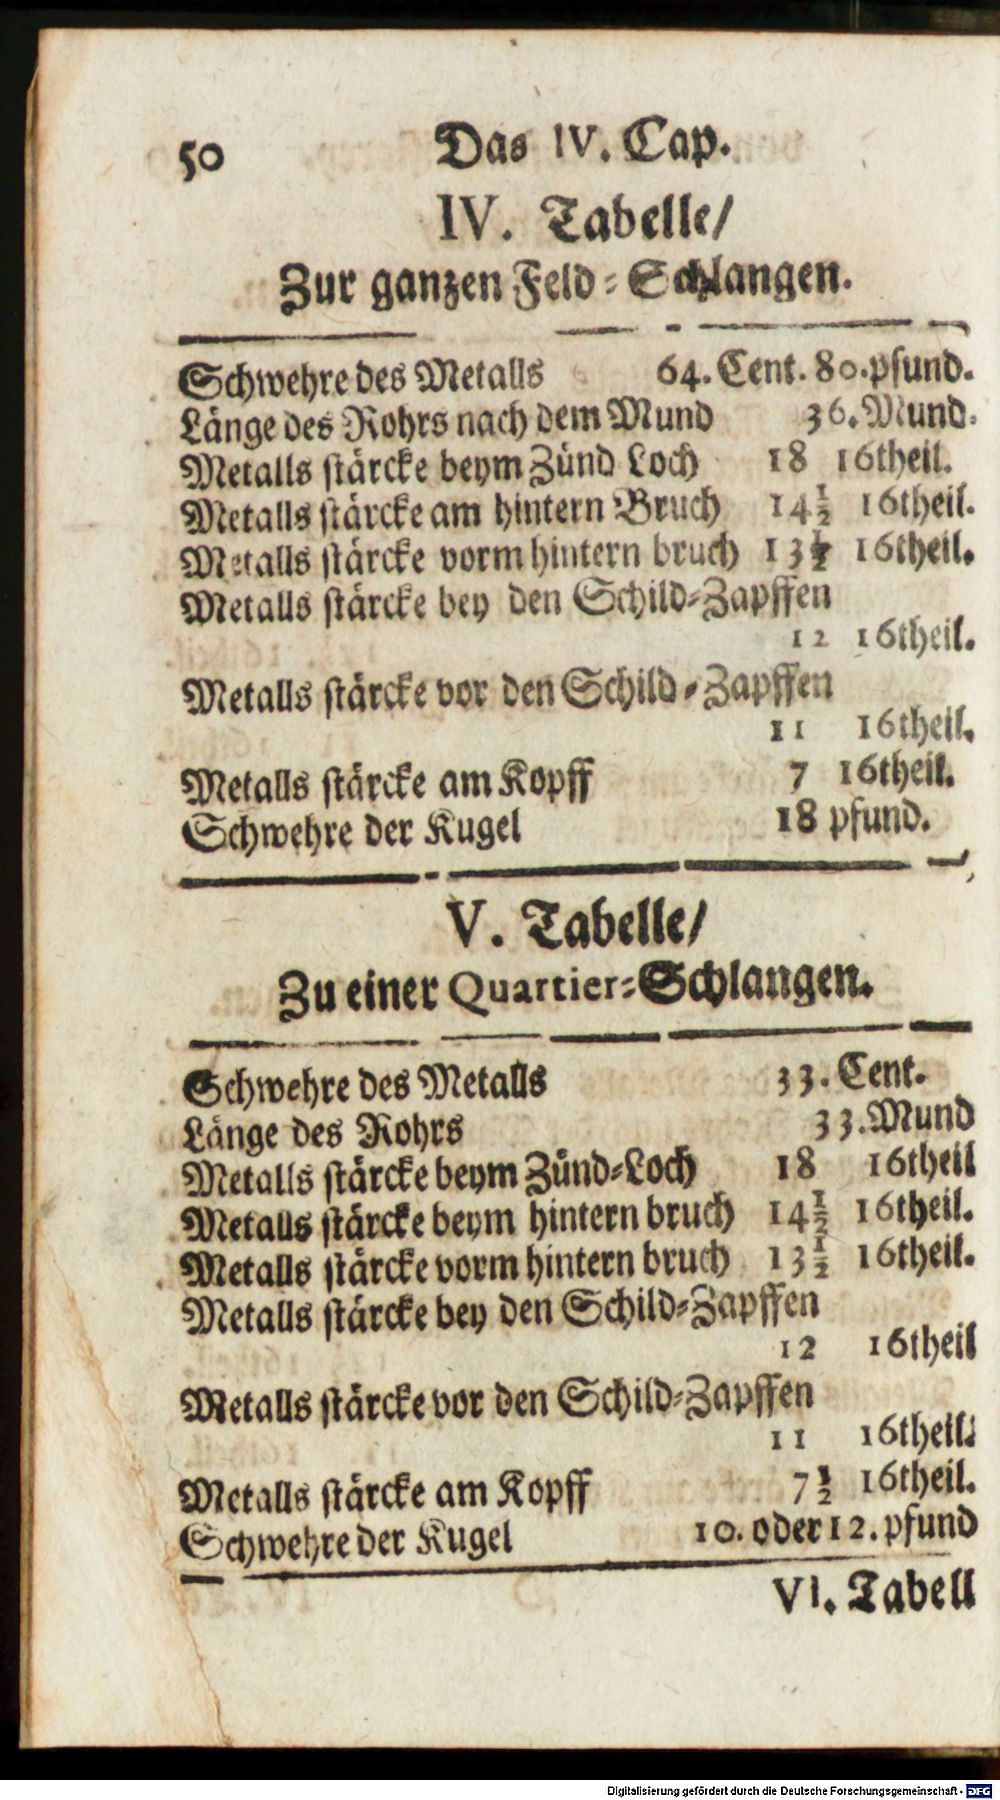 50 Das IV. Cap.
IV. Tabelle/
Zur ganzen Feld-Schlangen.
Schwehre des Metalls 64. Cent. 80. pfund.
Länge des Rohrs nach dem Mund 36. Mund.
Metalls stärcke beym Zünd Loch 18 16theil.
Metalls stärcke am hintern Bruch 14½ 16theil.
Metalls stärcke vorm hintern bruch 13½ 16theil.
Metalls stärcke bey den Schild-Zapffen
12 16theil.
Metalls stärcke vor den Schild-Zapffen
11 16theil.
Metalls stärcke am Kopff 7 16theil.
Schwehre der Kugel 18 pfund.
V. Tabelle/
Zu einer Quartier-Schlangen.
Schwehre des Metalls 33. Cent.
Länge des Rohrs 33. Mund
Metalls stärcke beym Zünd-Loch 18 16theil
Metalls stärcke beym hintern bruch 14½ 16theil.
Metalls stärcke vorm hintern bruch 13½ 16theil.
Metalls stärcke bey den Schild-Zapffen
12 16theil
Metalls stärcke vor den Schild-Zapffen
11 16theil.
Metalls stärcke am Kopff 7½ 16theil.
Schwehre der Kugel 10. oder 12. pfund
VI. Tabell
Digitalisierung gefördert durch die Deutsche Forschungsgemeinschaft - DFG